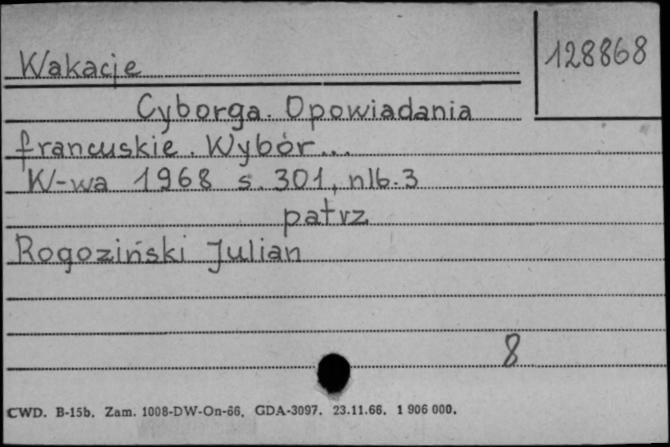 128868
Wakacje
Cyborga. Opowiadania
francuskie. Wybór...
W-wa 1968 s. 301, nlb. 3
patrz
Rogoziński Julian
8
CWD. B-15b. Zam. 1008-DW-On-66. GDA-3097. 23.11.66. 1 906 000.